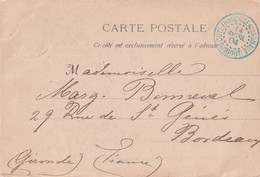 CARTE POSTALE
Ce côté est exclusivement réservé à l'adresse
Mademoiselle
Marg. Bonneval
29 Rue de St Genès
Bordeaux
(Gironde) (France)